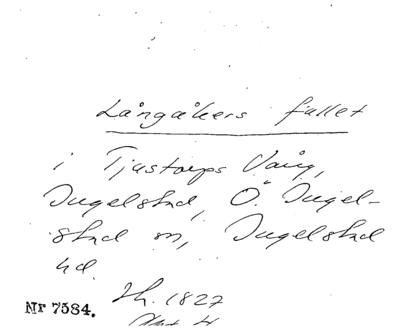 Långåkers fallet
i Tjustorps Vång,
Ingelstad, Ö. Ingel-
stad sn, Ingelstad
hd.
Sk. 1827
Nr 7584.